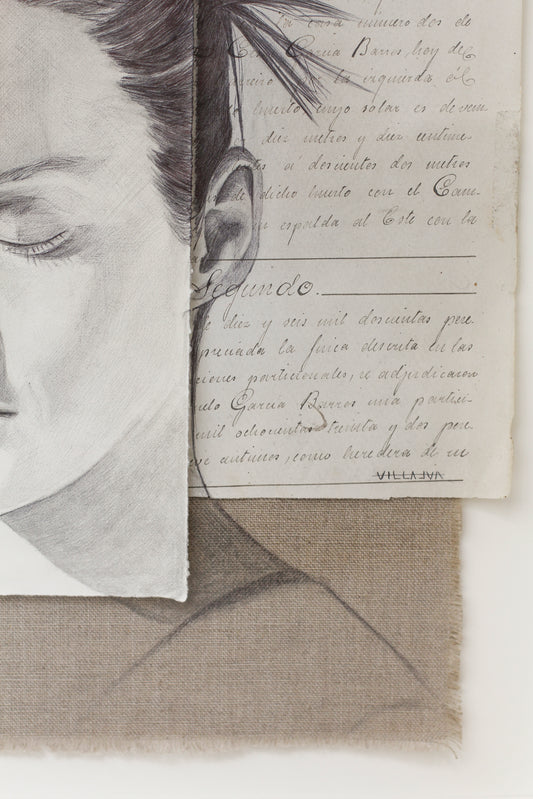 la casa número dos de
García Barros, hoy de
por la izquierda él
huerto, cuyo solar es de vein
diez metros y diez centíme-
ós á doscientos dos metros
de dicho huerto con el Cam-
espalda al Este con la
Segundo.
diez y seis mil doscientas pese
preciada la finca descrita en las
ciones particionales, se adjudicaron
García Barros una partici-
mil ochocientas treinta y dos pese
como heredera de su
VILLALVA